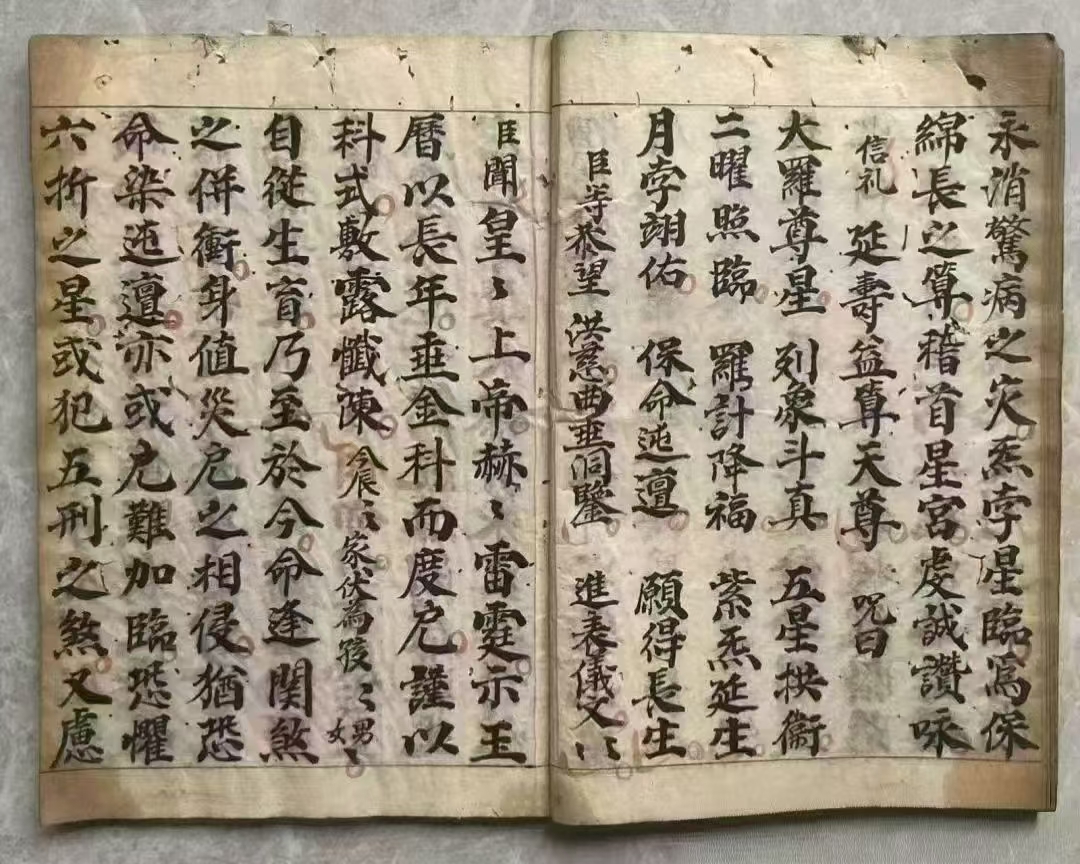 永消驚病之灾炁孛星臨寫保
綿長之算稽首星宮虔誠讚咏
信礼 延壽益算天尊 咒曰
大羅尊星 列象斗真 五星拱衛
二曜照臨 羅計降福 紫炁延生
月孛翊佑 保命迍邅 願得長生
臣等恭望 洪慈曲垂洞鑒 進表儀文〻
臣聞皇〻上帝赫〻雷霆示玉
曆以長年垂金科而度厄謹以
科式敷露懺陳今辰〻家伏為孩〻男女〻
自從生育乃至於今命逢関煞
之併衝身值災厄之相侵猶恐
命染迍邅亦或厄難加臨恐懼
六折之星或犯五刑之煞又慮